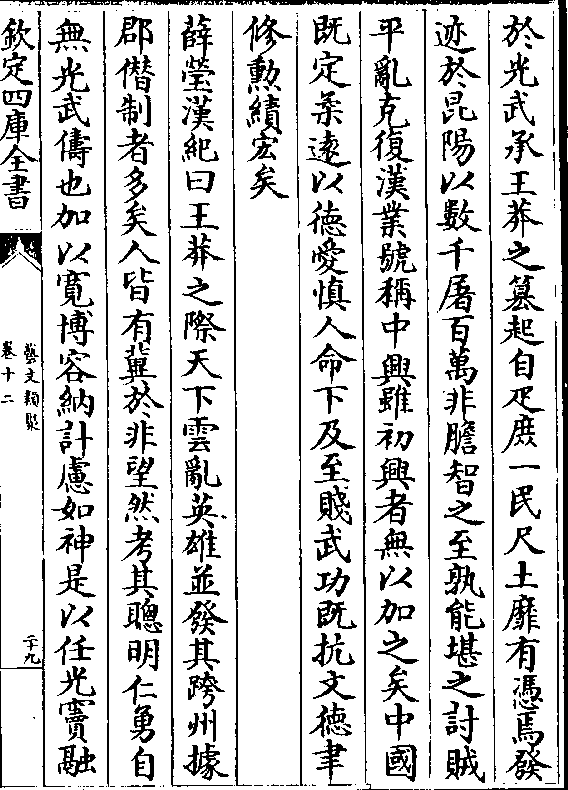 於光武承王莽之篡起自疋庶一民尺土靡有憑焉發
迹於昆陽以數千屠百萬非膽智之至孰能堪之討賊
平亂克復漢業號稱中興雖初興者無以加之矣中國
既定柔遠以德愛慎人命下及至賤武功既抗文德聿
修勲績宏矣
薛瑩漢紀曰王莽之際天下雲亂英雄並發其跨州據
郡僭制者多矣人皆有冀於非望然考其聰明仁勇自
無光武儔也加以寛博容納計慮如神是以任光竇融
欽定四庫全書
藝文類聚
卷十二
二十九